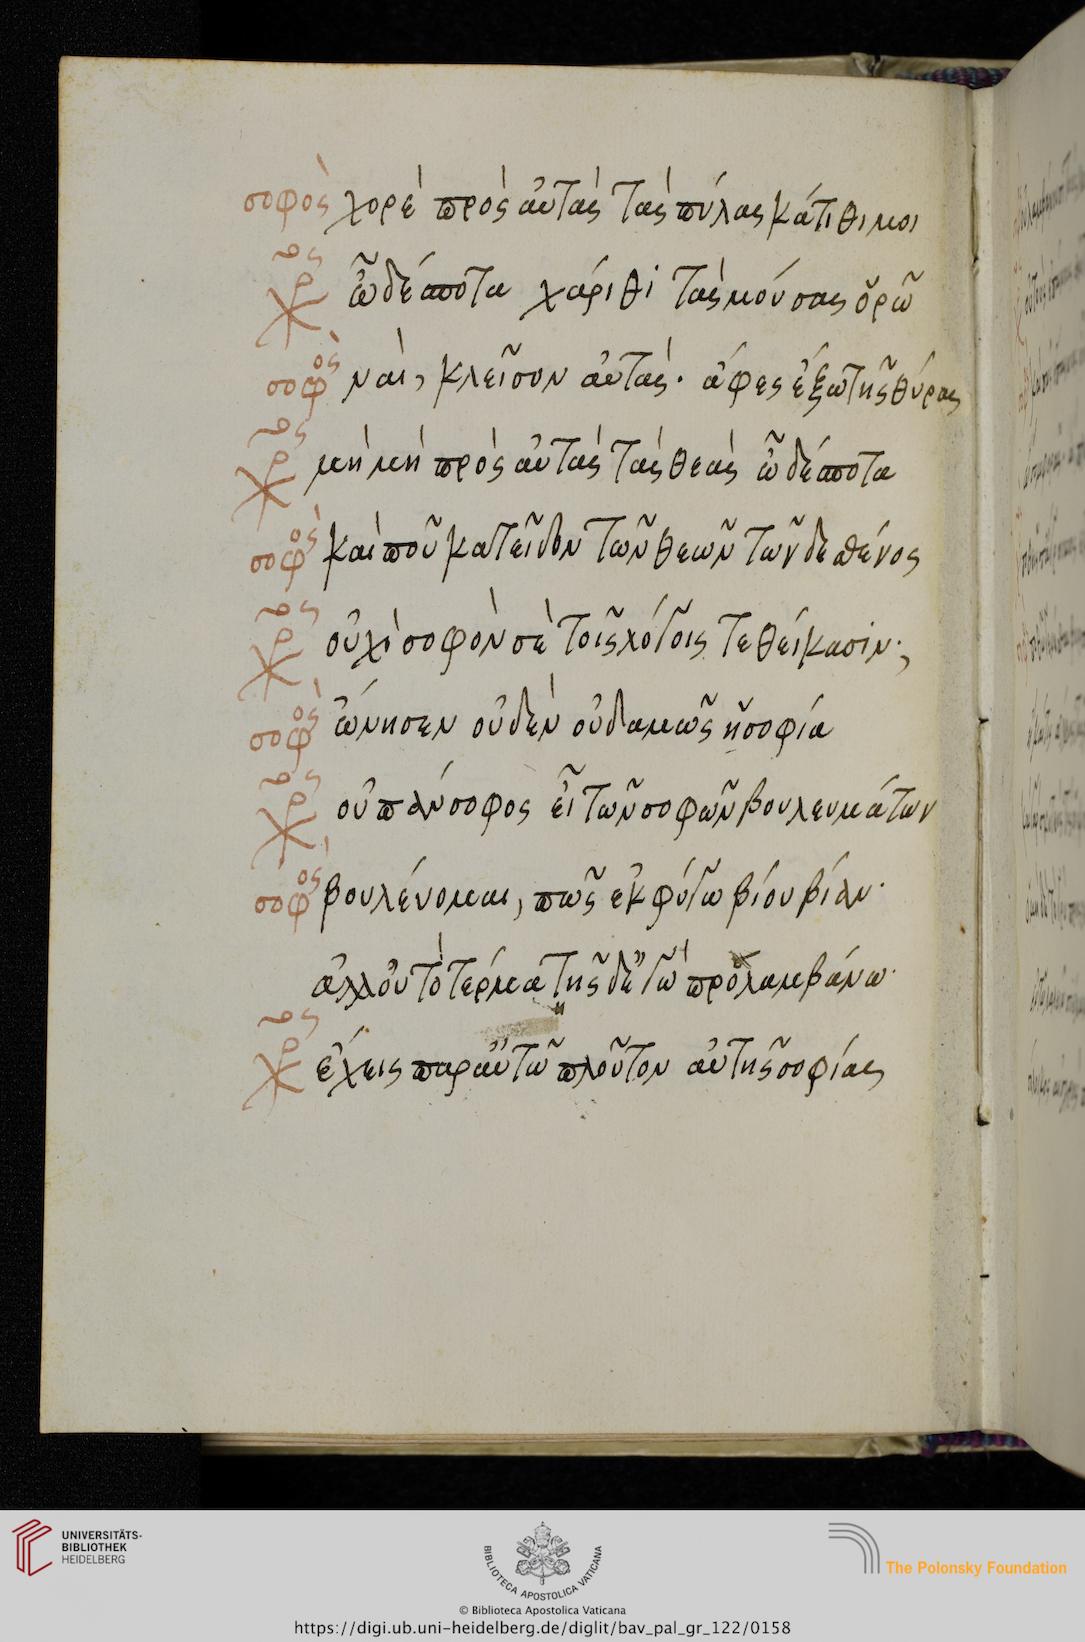 σοφὸς χορὲ πρὸς αὐτὰς τὰς πύλας κάτιθι μοι
χρος ὦ δέσποτα χάριθι τὰς μούσας ὁρῶ
σοφὸς ναὶ, κλεῖσον αὐτὰς· ἄφες ἔξω τῆς θύρας
χρος μὴ μὴ πρὸς αὐτὰς τὰς θεὰς ὦ δέσποτα
σοφὸς καὶ ποῦ κατεῖδον τῶν θεῶν τῶνδε σθένος
χρος οὐχὶ σοφὸν σὲ τοῖς λόγοις τεθείκασιν·,
σοφὸς ὤνησεν οὐδὲν οὐδαμῶς ἡ σοφία
χρος οὐ πάνσοφος εἶ τῶν σοφῶν βουλευμάτων
σοφὸς βουλένομαι, πῶς ἐκφύγω βίου βίαν·
ἀλλ' οὐ τὸ τέρμα τῆς δὲ γῶ προλαμβάνω·
χρος ἔχεις παρ αὐτῶ πλοῦτον αὐτῆς σοφίας
UNIVERSITÄTS-
BIBLIOTHEK
HEIDELBERG
BIBLIOTECA APOSTOLICA VATICANA
The Polonsky Foundation
© Biblioteca Apostolica Vaticana
https://digi.ub.uni-heidelberg.de/diglit/bav_pal_gr_122/0158